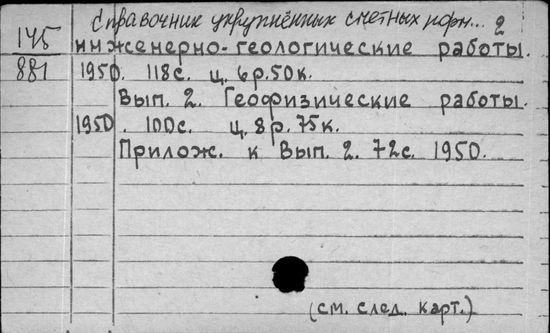 Справочник укрупнённых сметных норм... 2
145 инженерно-геологические работы.
881 1950. 118с. ц. 6р.50к.
Вып. 2. Геофизические работы.
1950. 100с. ц. 8р.75к.
Прилож. к Вып. 2. 72с. 1950.
(см. след. карт.)